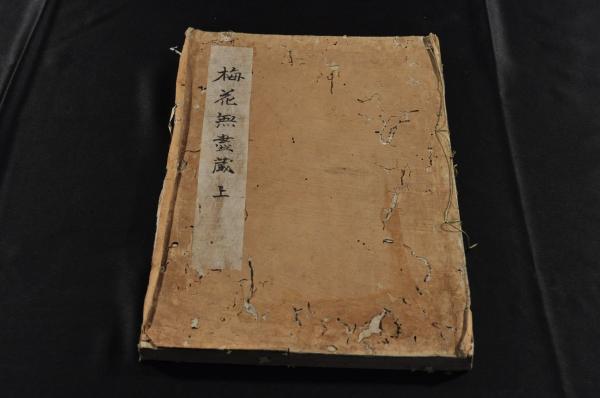 梅花無盡蔵上